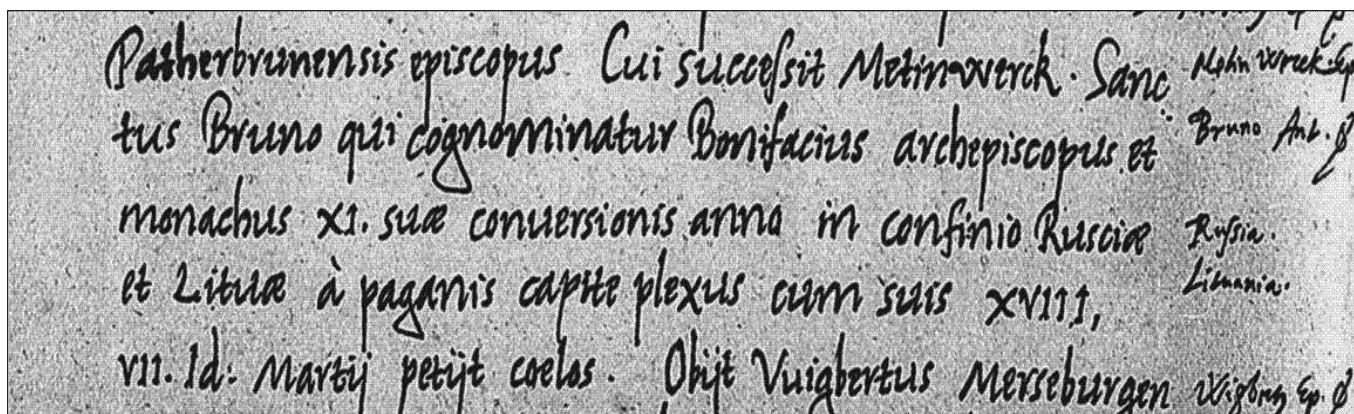 Patherbrunensis episcopus Cui succeſsit Metinwerck. Sanc
tus Bruno qui cognominatur Bonifacius archepiscopus et
monachus XI. suæ conuersionis anno in confinio Rusciæ
et Lituæ à paganis capite plexus cum suis XVIII,
VII. Id. Martij petijt coelos. Obijt Vuigbertus Merseburgen
Bruno
Ruſsia.
Lituania.
Ep.